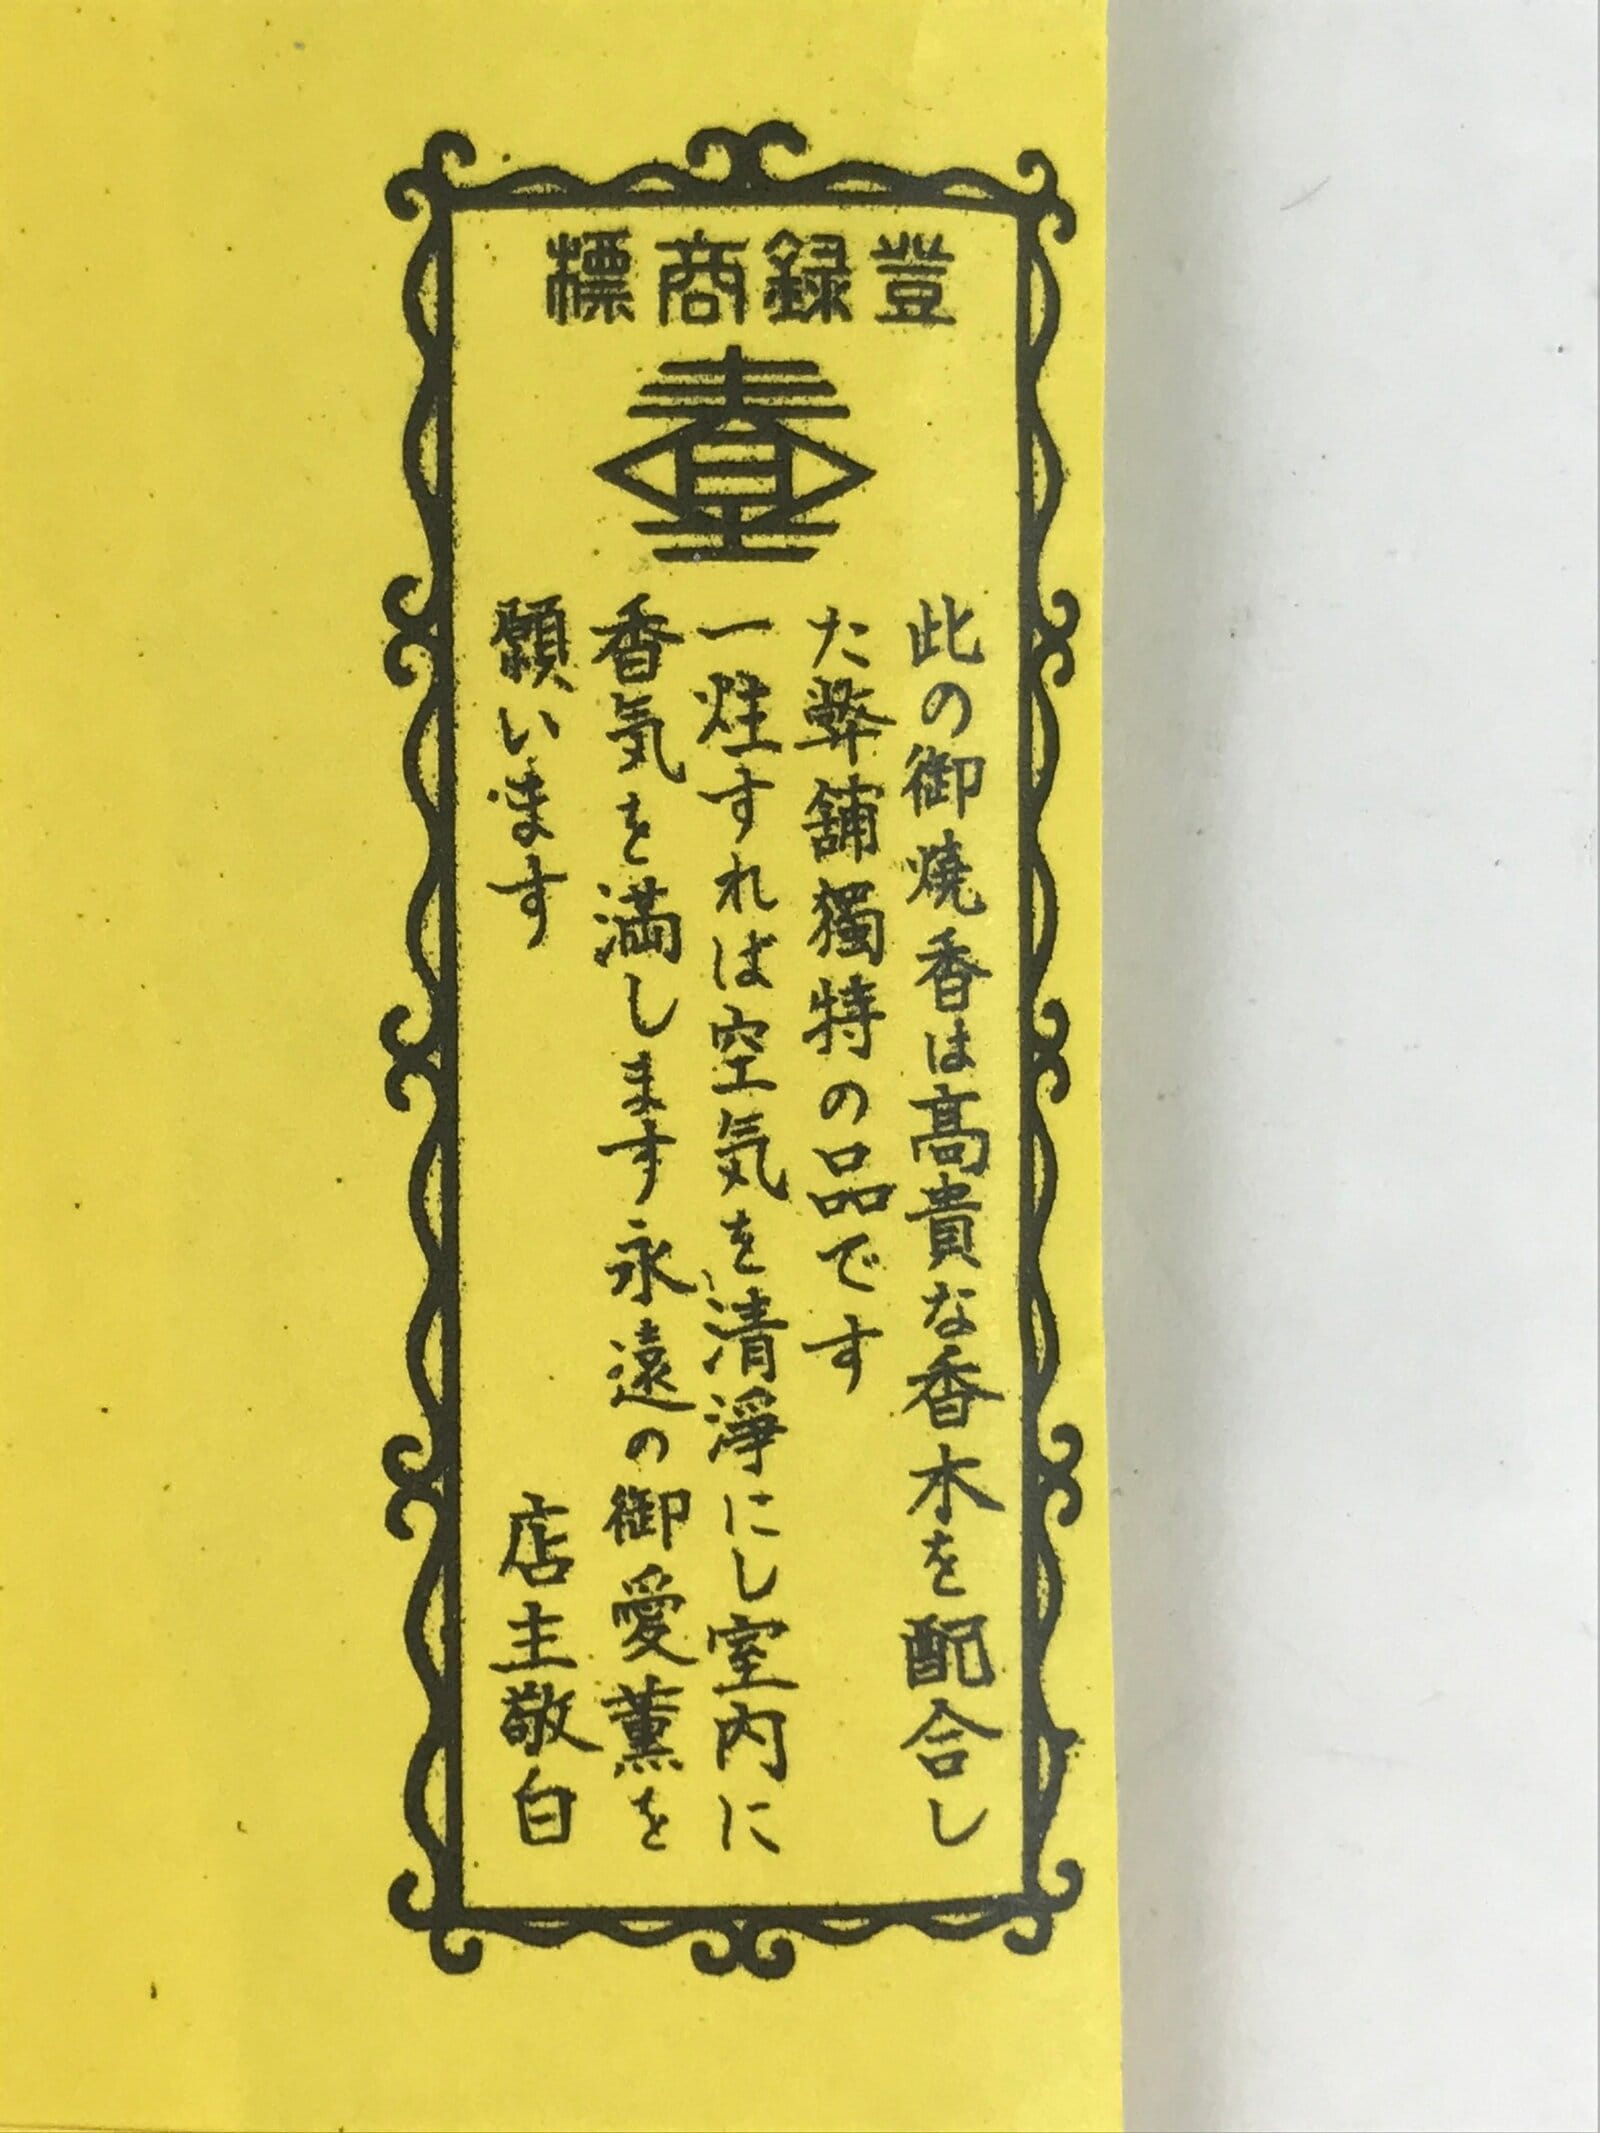 登録商標
此の御焼香は高貴な香木を配合し
た弊舗獨特の品です
一炷すれば空気を清淨にし室内に
香気を満します永遠の御愛薫を
願います
店主敬白